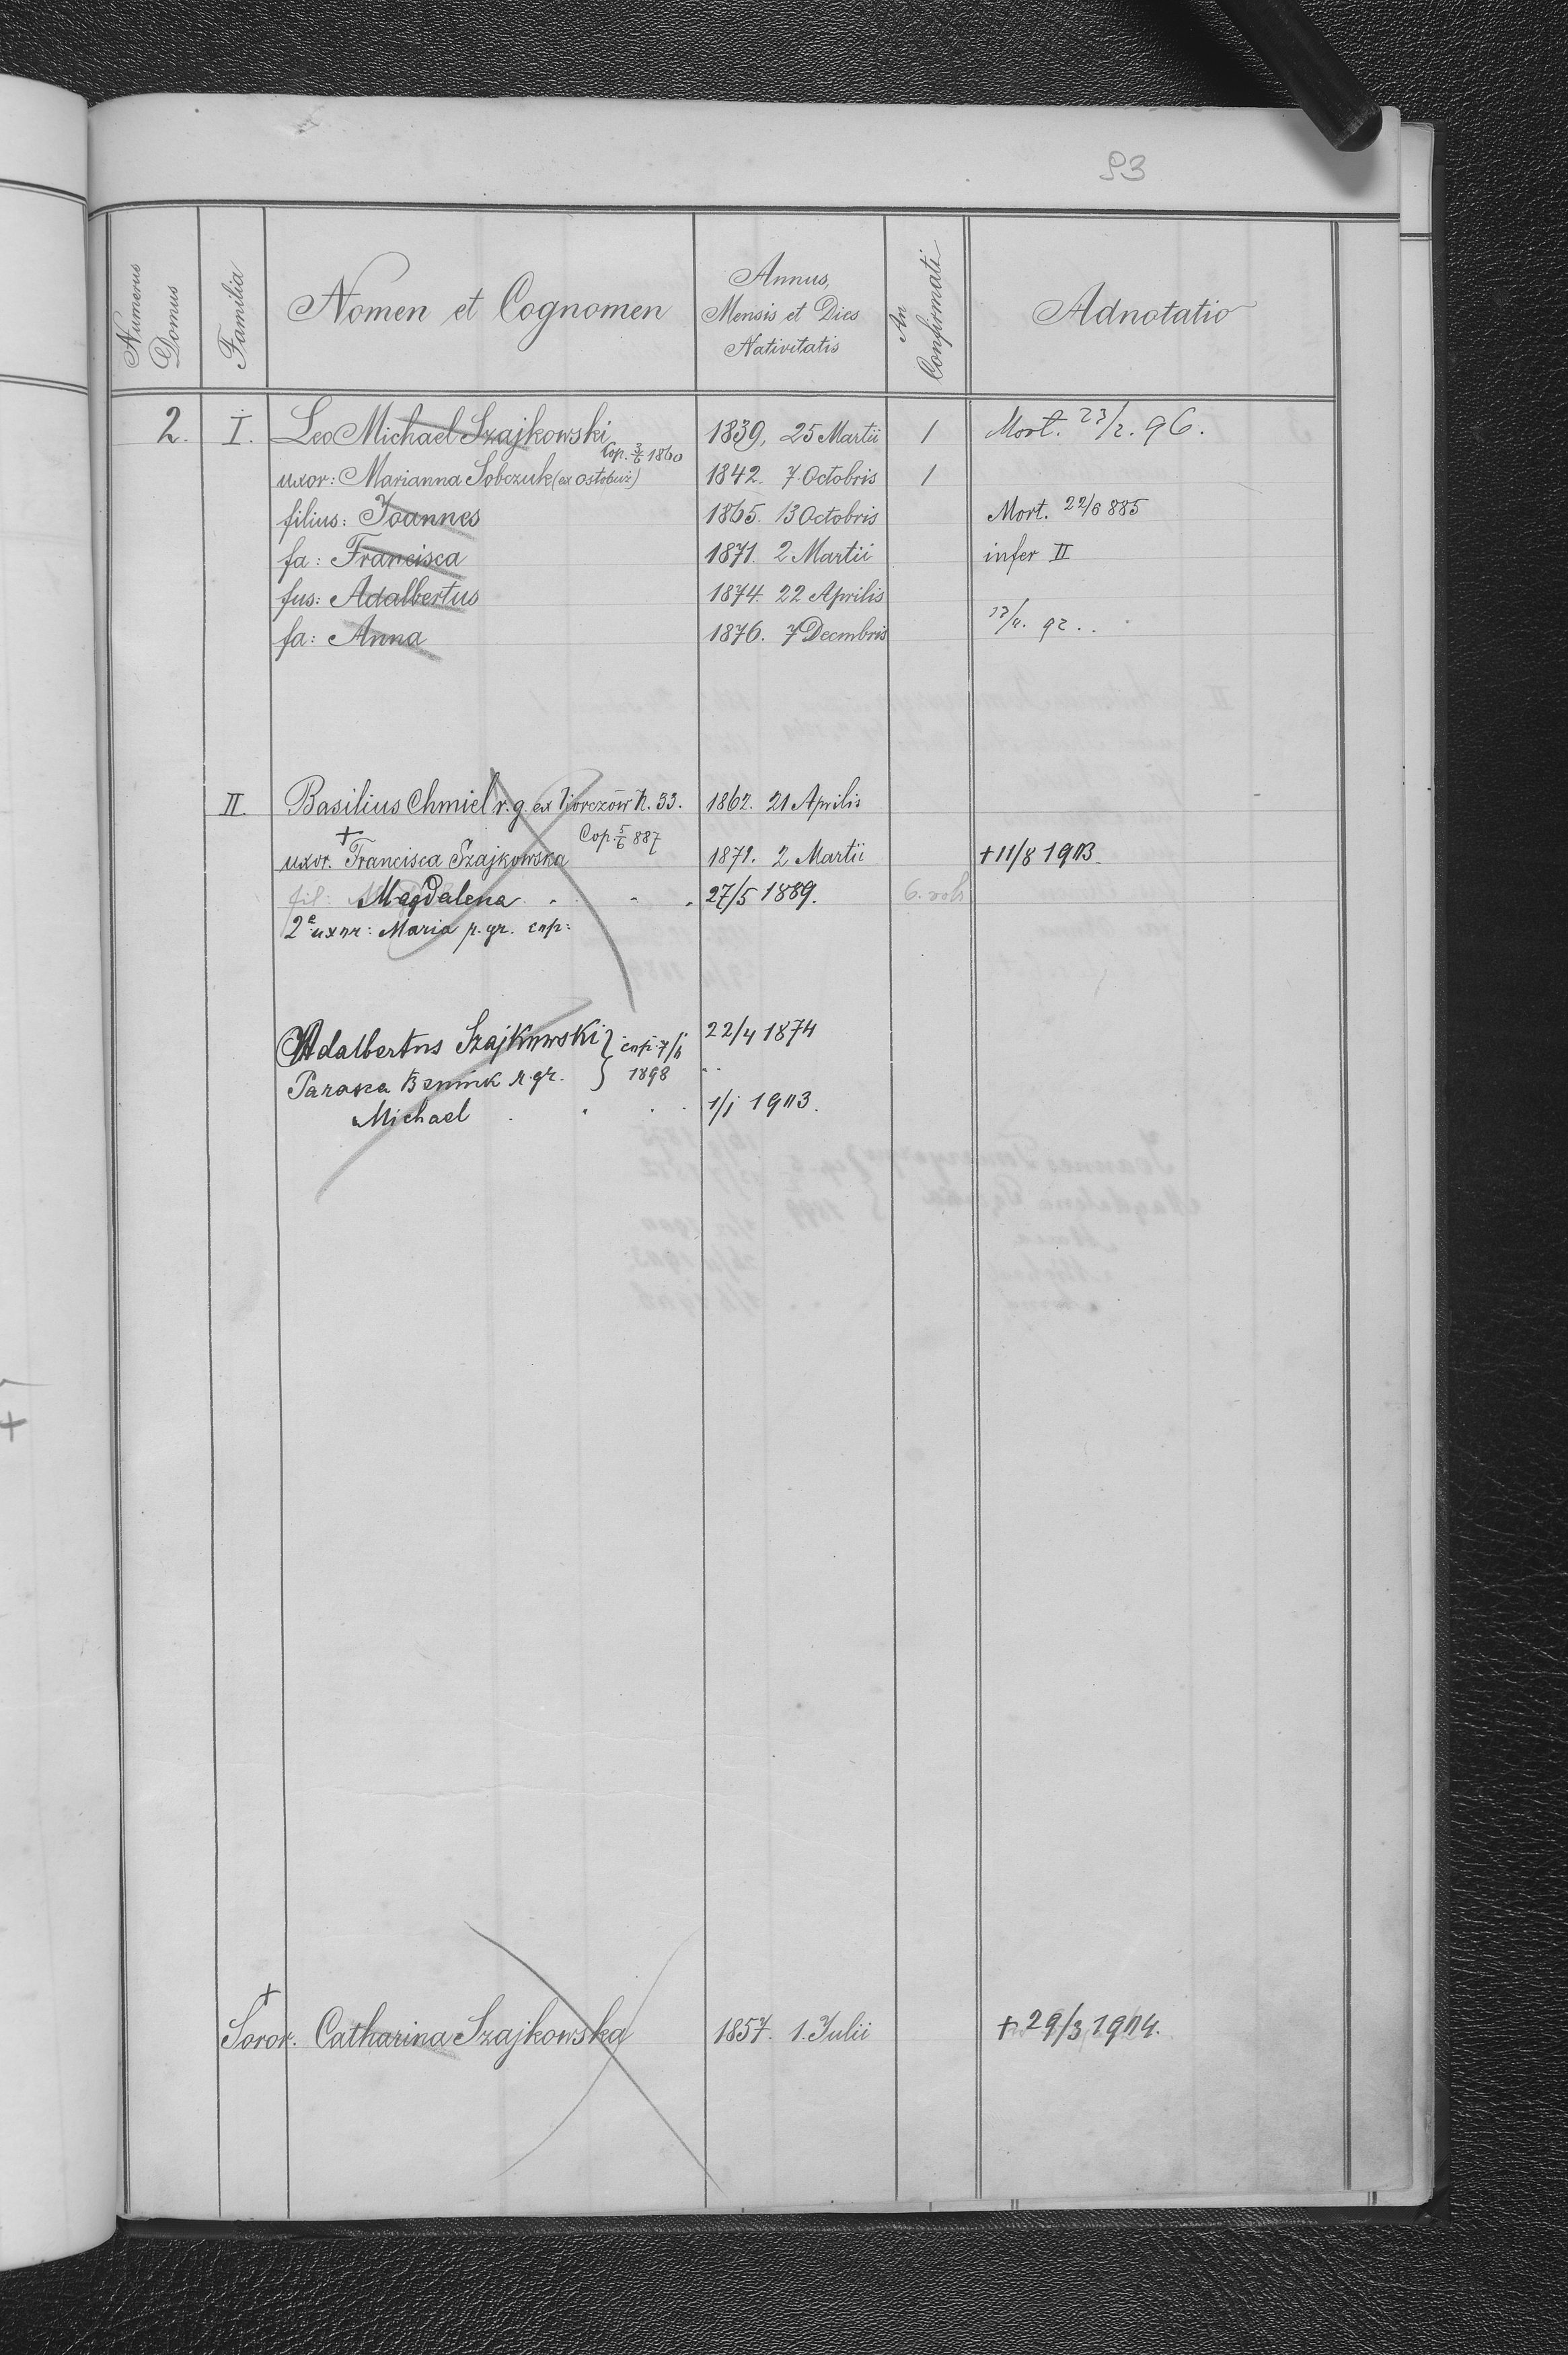 93
Numerus Domus Familia Nomen et Cognomen Annus, Mensis et Dies Nativitatis An Confirmati Adnotatio
2. I. Leo Michael Szajkowski 1839, 25 Martii 1 Mort. 23/2. 96.
Cop. 3/6 1860
uxor: Marianna Sobczuk (ex Ostobuż) 1842. 7 Octobris 1
filius: Joannes 1865. 13 Octobris Mort. 22/6 885
fa: Francisca 1871. 2 Martii infer II
fus: Adalbertus 1874. 22 Aprilis
fa: Anna 1876. 7 Decmbris 92..
II. Basilius Chmiel r. g. ex N. 53. 1862. 21 Aprilis
Cop. 5/6 887
+
uxor. Francisca Szajkowska 1871. 2 Martii + 11/8 1903.
fil: Magdalena 27/5 1889.
2ª uxor: Maria r. gr. cop:
Adalbertus Szajkowski } cop. 7/6 22/4 1874
Parasca r. gr. } 1898
Michael 1/j 1903.
+
Soror. Catharina Szajkowska 1857. 1. Julii + 29/3 1904.